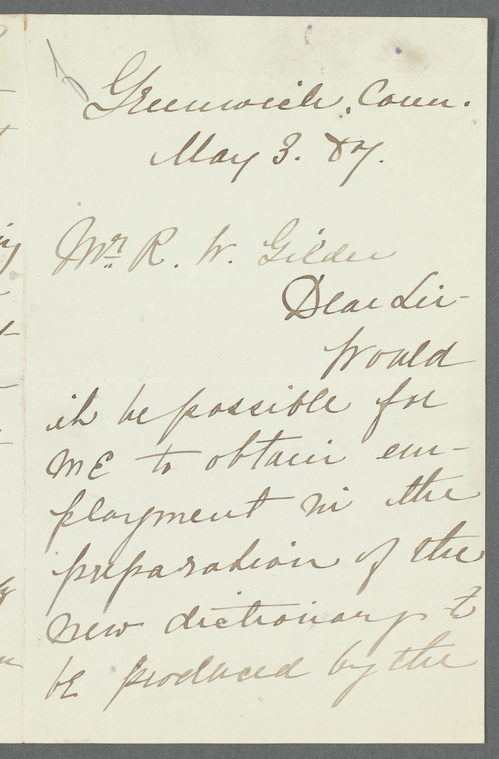 Greenwich, Conn.
May 3. 87.
Mr. R. W. Gilder
Dear Sir-
Would
it be possible for
me to obtain em-
ployment in the
preparation of the
new dictionary to
be produced by the